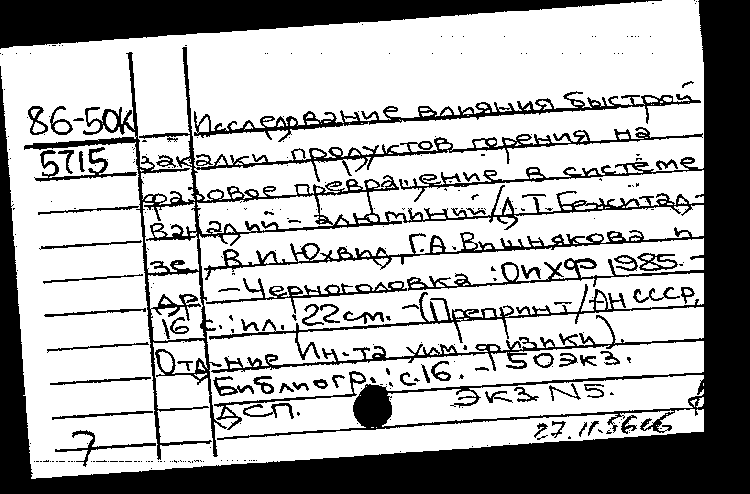 86-50К
5715
Исследование влияния быстрой
закалки продуктов горения на
фазовое превращение в системе
ванадий - алюминий/Д.Т.Бежитад-
зе, В.И.Юхвид, Г.А.Вишнякова и
др. - Черноголовка: ОИХФ, 1985. -
16 с.: ил.; 22см. - (Препринт/АН СССР,
Отд-ние Ин-та хим. физики).
Библиогр.: с.16. - 150экз.
ДСП.
Экз N5.
27.11.86
7